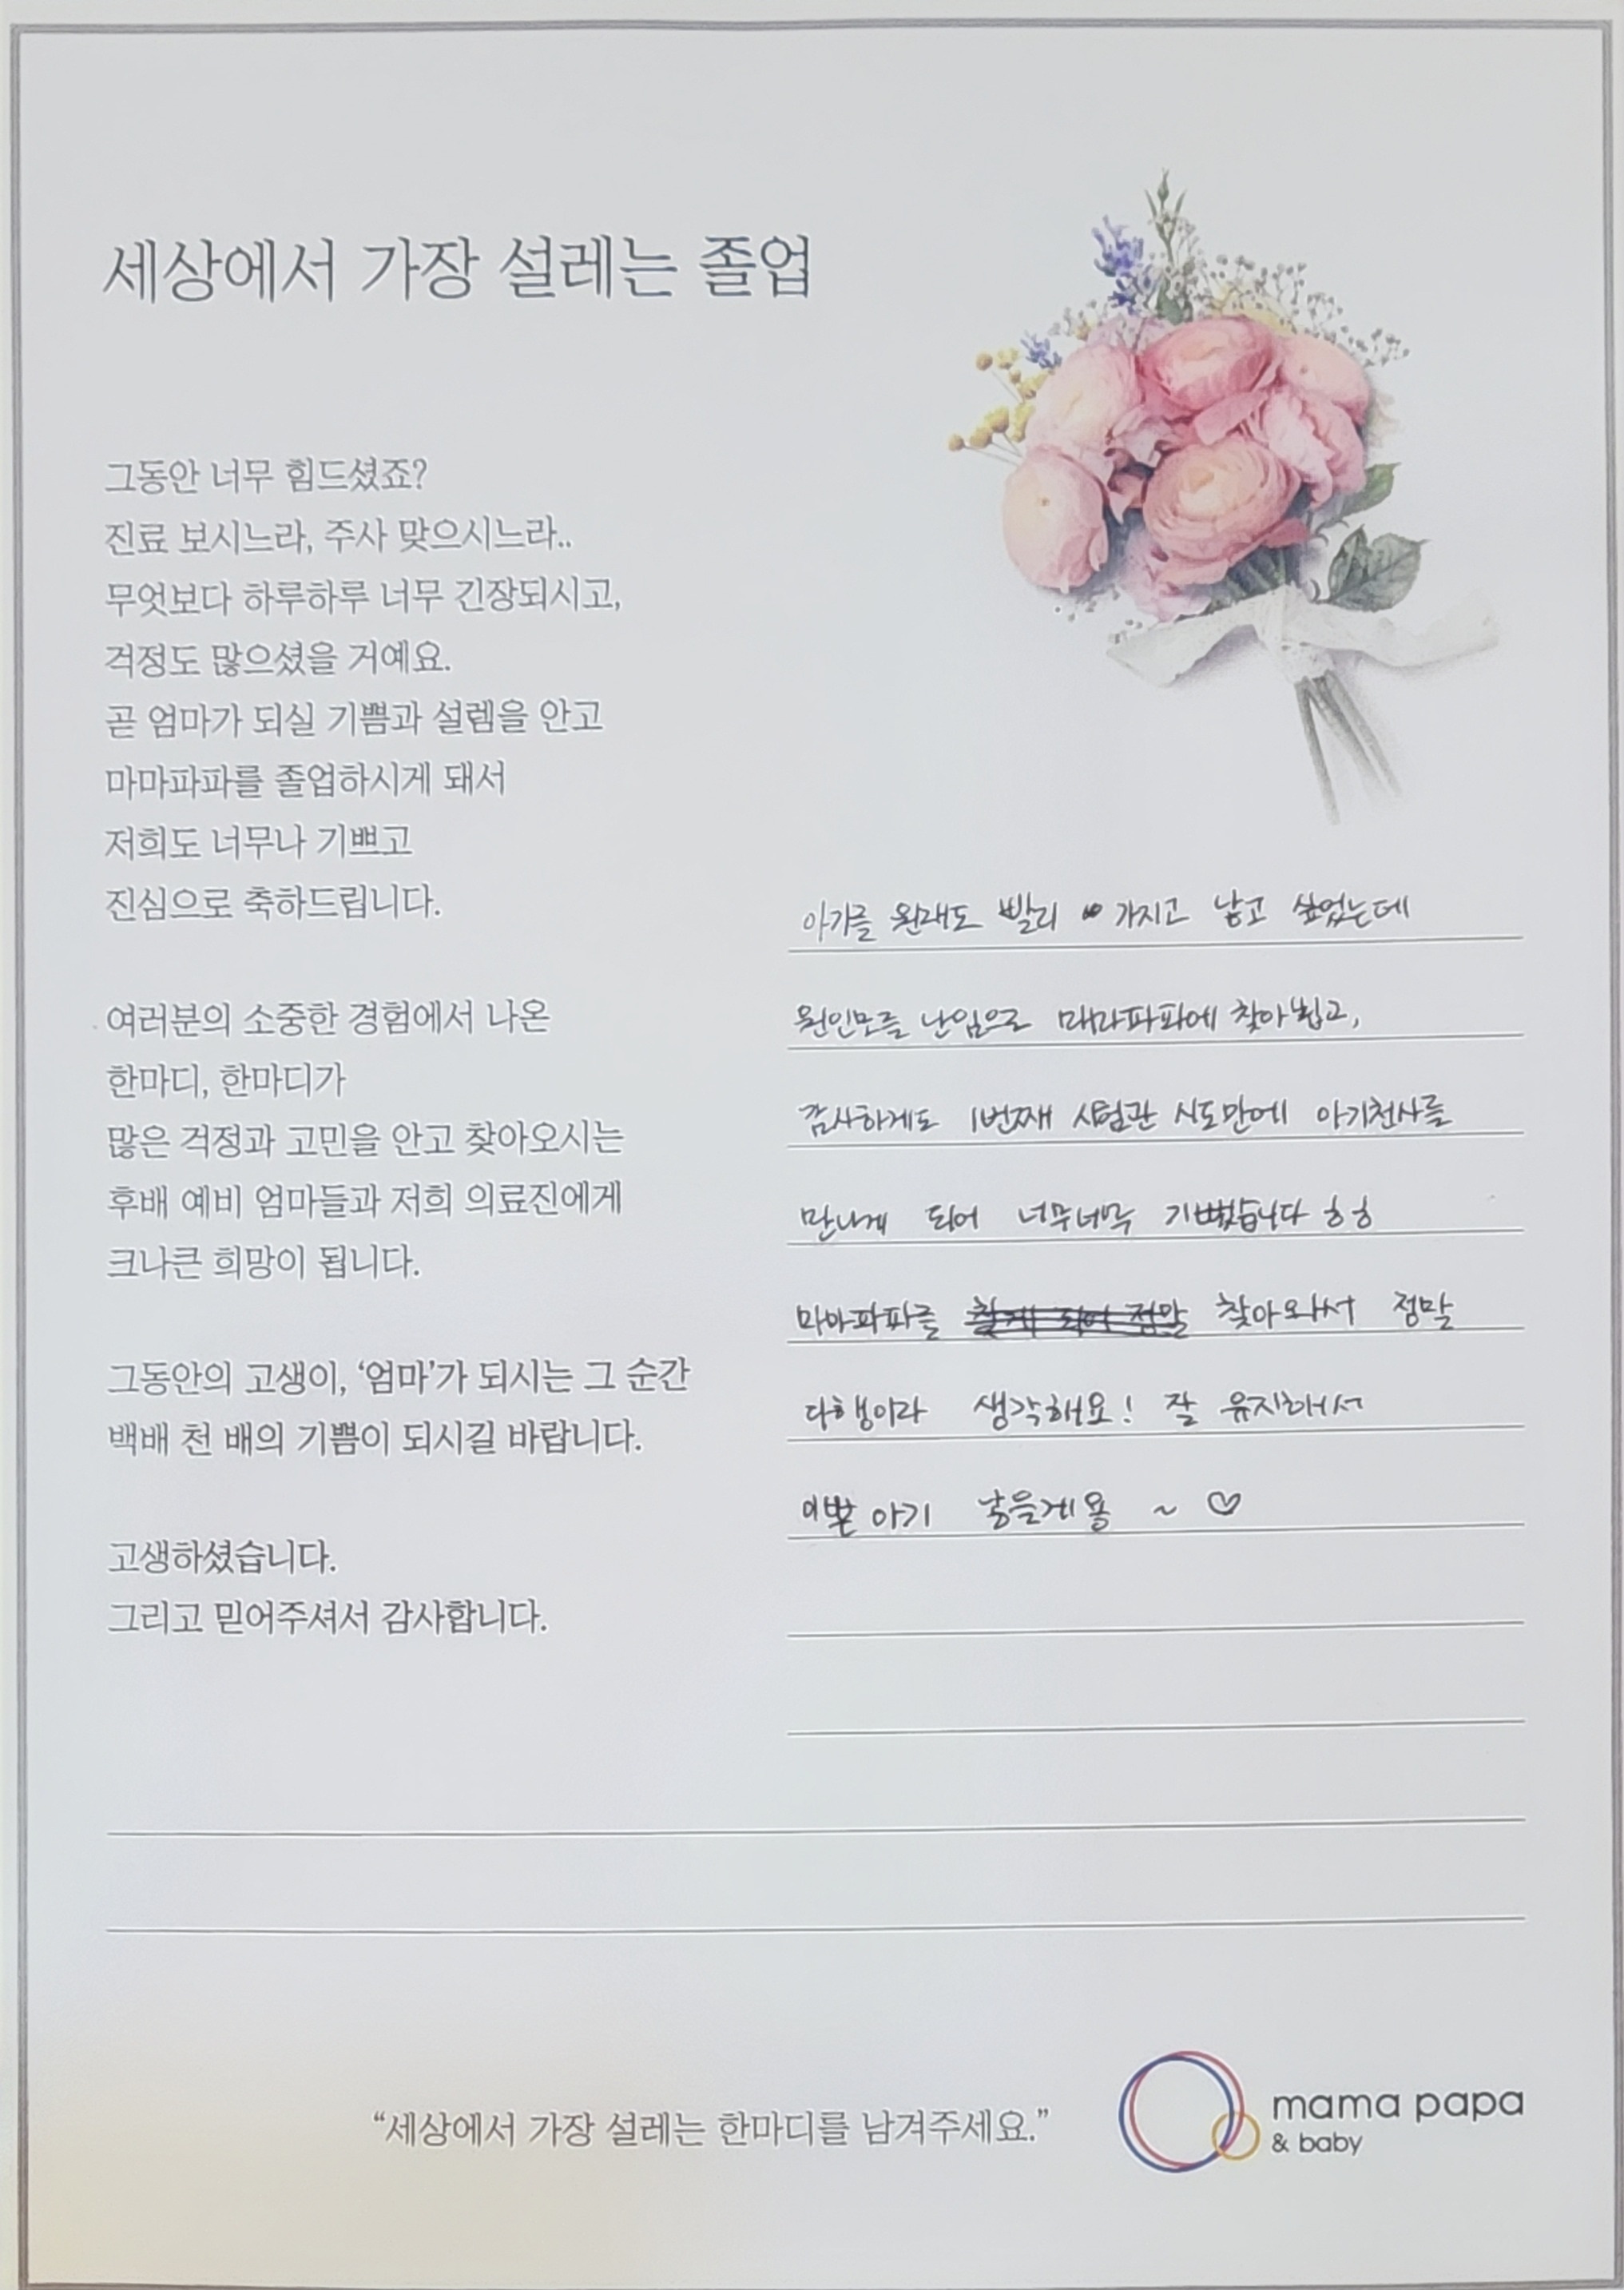 세상에서 가장 설레는 졸업
그동안 너무 힘드셨죠?
진료 보시느라, 주사 맞으시느라..
무엇보다 하루하루 너무 긴장되시고,
걱정도 많으셨을 거예요.
곧 엄마가 되실 기쁨과 설렘을 안고
마마파파를 졸업하시게 돼서
저희도 너무나 기쁘고
진심으로 축하드립니다.
여러분의 소중한 경험에서 나온
한마디, 한마디가
많은 걱정과 고민을 안고 찾아오시는
후배 예비 엄마들과 저희 의료진에게
크나큰 희망이 됩니다.
그동안의 고생이, ‘엄마’가 되시는 그 순간
백배 천 배의 기쁨이 되시길 바랍니다.
고생하셨습니다.
그리고 믿어주셔서 감사합니다.
아기를 원래도 빨리 가지고 낳고 싶었는데
원인모를 난임으로 마마파파에 찾아뵙고,
감사하게도 1번째 시험관 시도만에 아기천사를
만나게 되어 너무너무 기뻤습니다 ㅎㅎ
마마파파를 찾아와서 정말
다행이라 생각해요! 잘 유지해서
이쁜 아기 낳을게용 ~ ♡
“세상에서 가장 설레는 한마디를 남겨주세요.”
mama papa
& baby